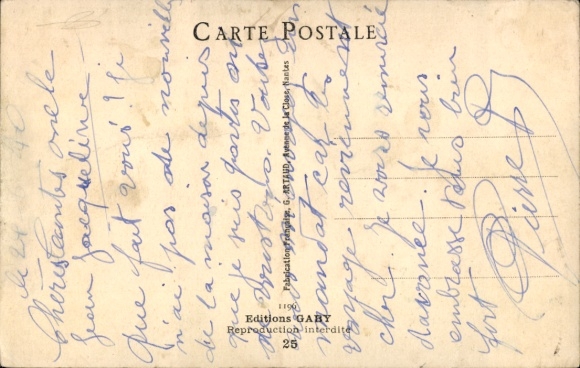 CARTE POSTALE
Chère tantes oncle
Jean Jacqueline –
Que fait vous ? Si
n'ai pas de nouvelle
de la maison depuis
que je suis partes on
Vous
mandat car les
voyage reviennent
cher. Je vous remercie
d'avance. Je vous
embrasse tous bien
fort
Pierre
Fabrication Française, G. ARTAUD, Avenue de la Close, Nantes
1190
Editions GABY
Reproduction interdite
25